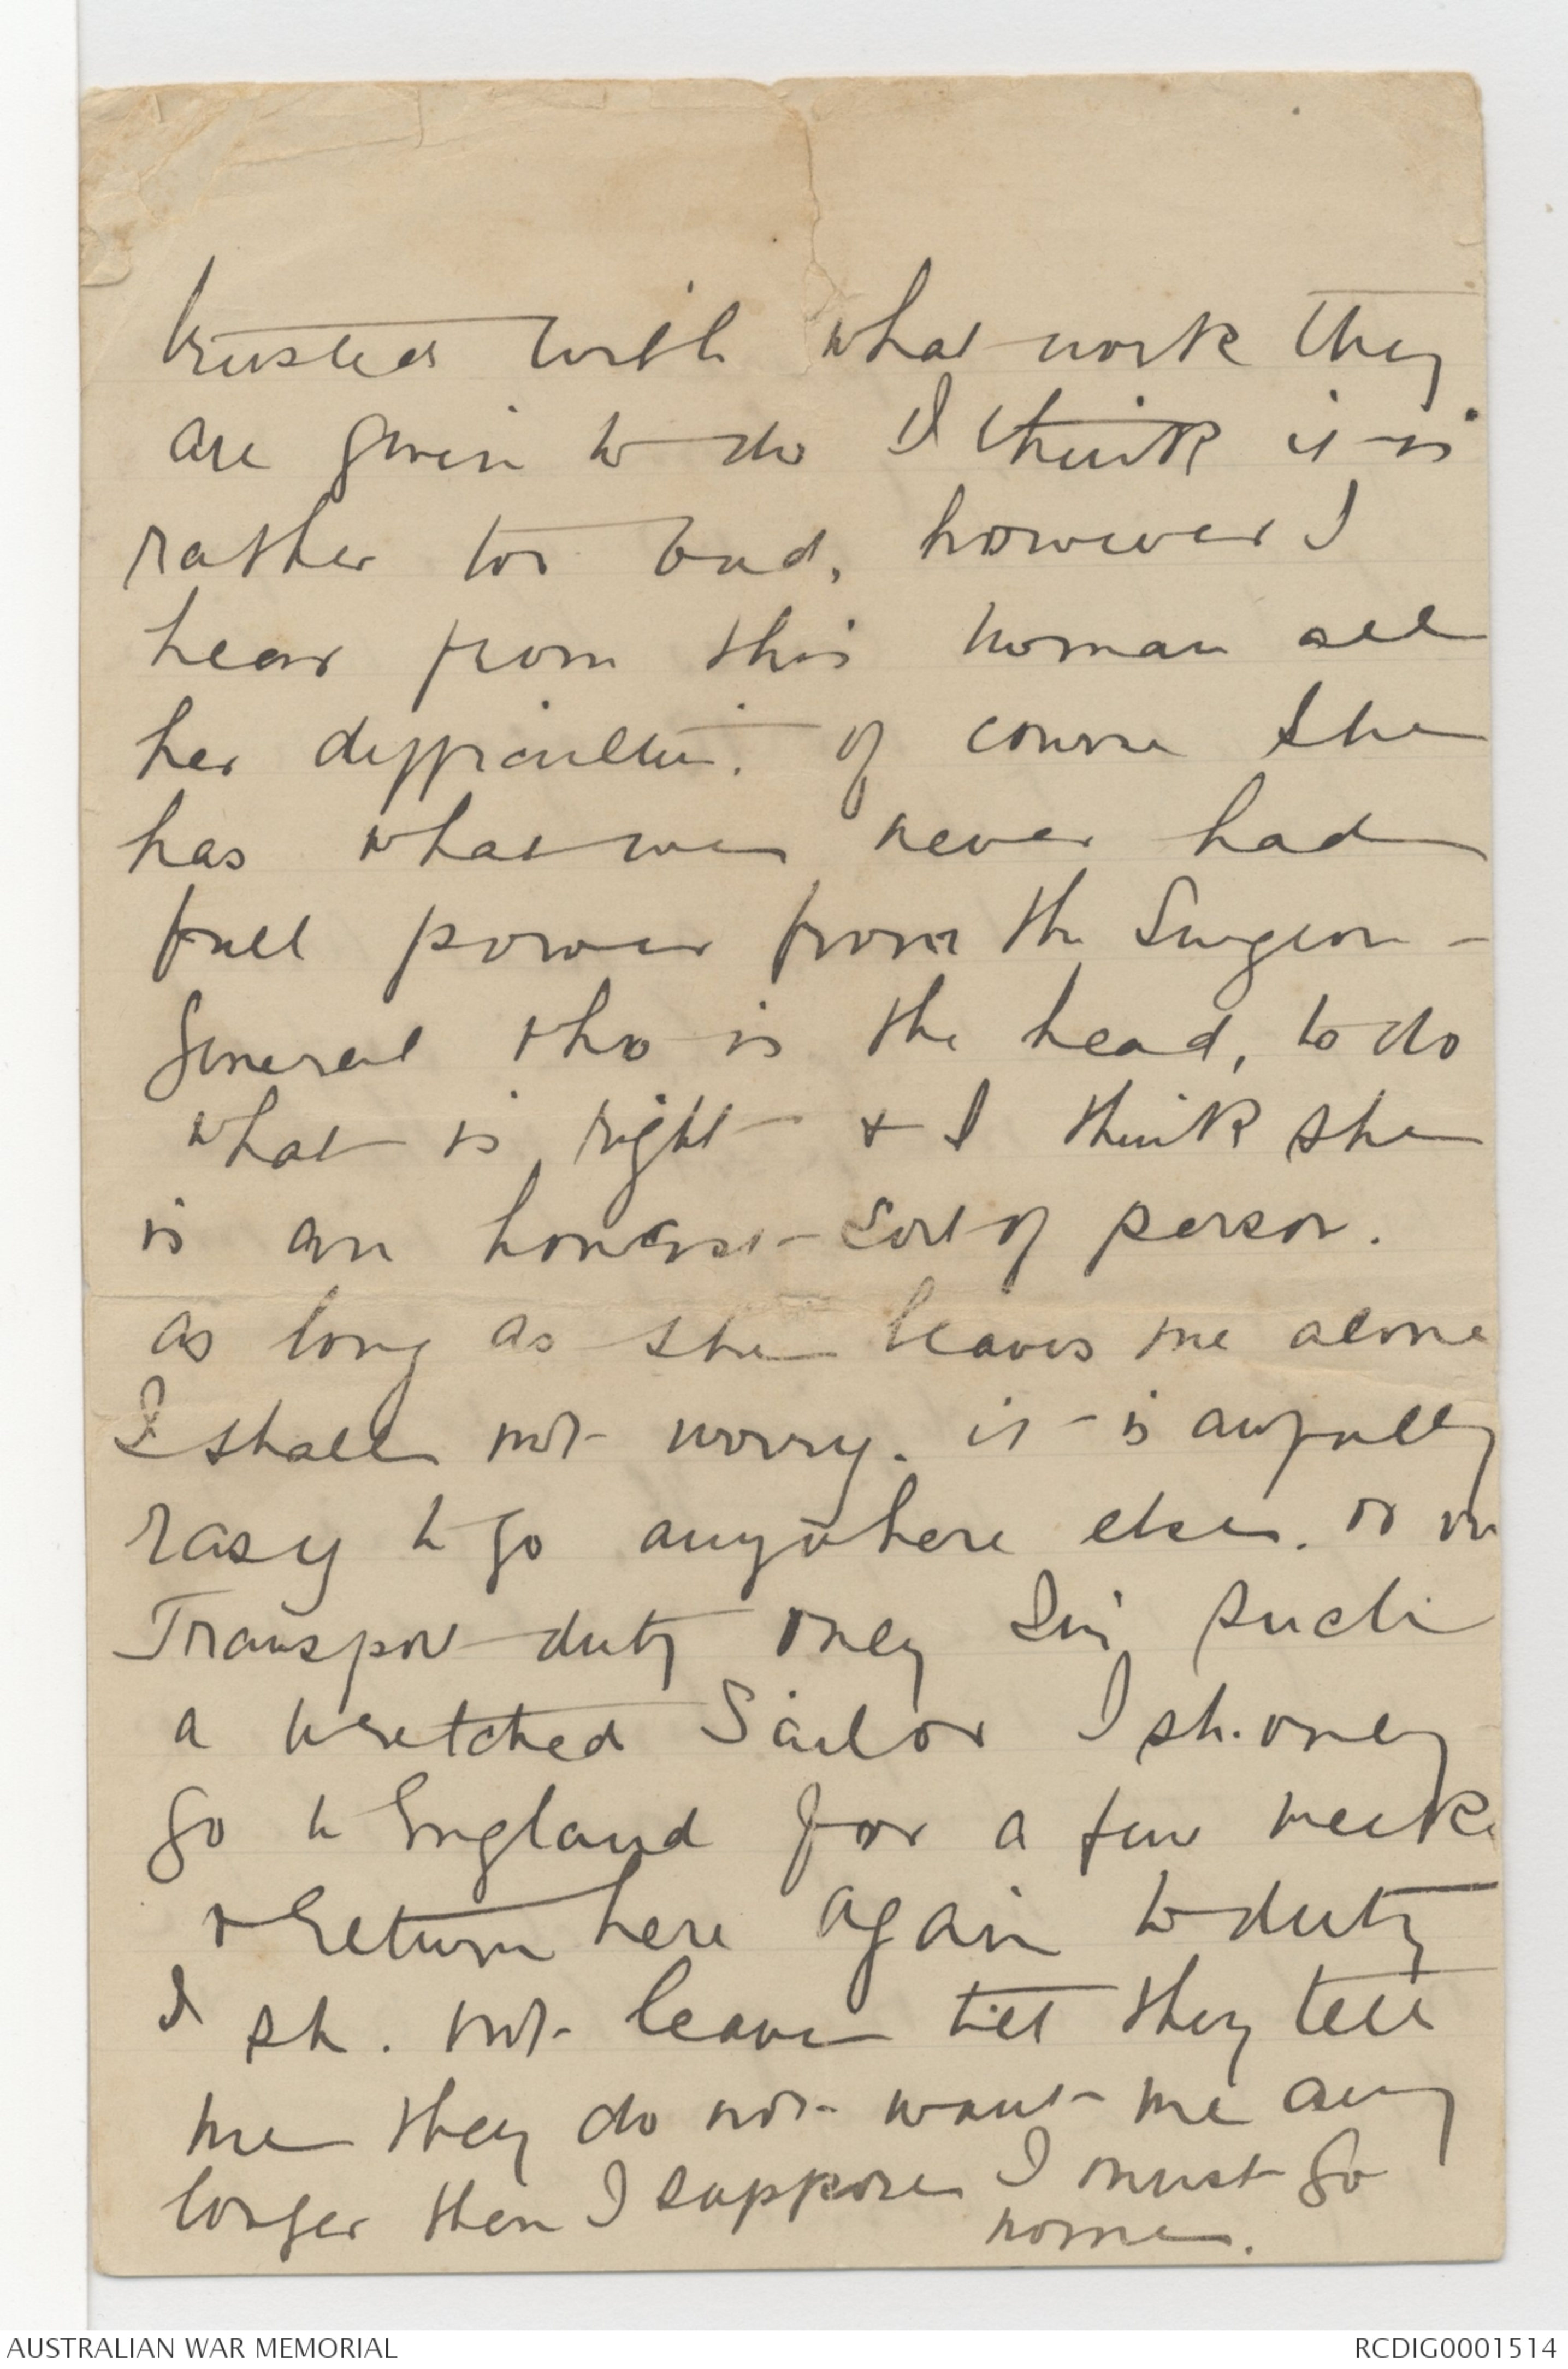 trusted with what work they
are given to do I think it is
rather too bad, however I
hear from this woman all
her difficulties. of course she
has what we never had
full power from the Surgeon -
General who is the head, to do
what is right & I think she
is an honest sort of person.
as long as she leaves me alone
I shall not worry. it is awfully
easy to go anywhere else. or on
Transport duty only I'm such
a wretched Sailor I sh. only
go to England for a few weeks
& return here again to duty
I sh. not leave till they tell
me they do not want me any
longer then I suppose I must go
home.
AUSTRALIAN WAR MEMORIAL
RCDIG0001514